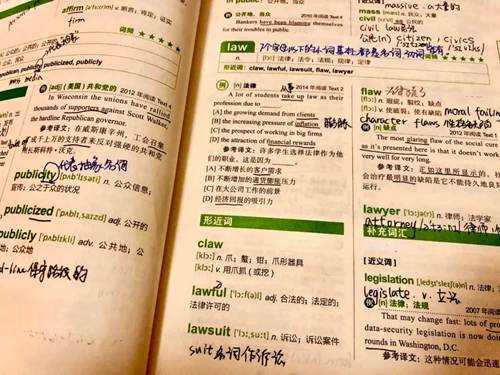 affirm
firm
n] 断言；肯定；证实
词频 ★★★★★★★★
publicized, publicly
例 [adj] (美国) 共和党的 2012年阅读 Text 4
In Wisconsin the unions have rallied
thousands of supporters against Scott Walker,
the hardline Republican governor.
参考译文：在威斯康辛州，工会召集
成千上万的支持者来反对强硬的共和党
州长斯科特·沃克。
publicity
[pʌb'lɪsəti] n. 公众信息；
宣传；公之于众的状况
publicized ['pʌblɪsaɪzd] adj. 公开的
publicly ['pʌblɪkli] adv. 公共地；公
公众地
in public: 公开地，当众
2010年阅读 Text 4
for their troubles in public.
参考译文：
law
词频 ★★★★★
[lɔː] n. 法律；法令；法规；规律；定律
形近词：claw, lawful, lawsuit, flaw, lawyer
例 [n] 法律 从事 2014年阅读 Text 2
A lot of students take up law as their
profession due to
[A] the growing demand from clients
[B] the increasing pressure of inflation
[C] the prospect of working in big firms
[D] the attraction of financial rewards
参考译文：许多学生选择法律作为他
们的职业，这是因为
[A] 不断增长的客户需求
[B] 不断增加的通货膨胀压力
[C] 在大公司工作的前景
[D] 经济回报的吸引力
形近词
claw
[klɔː] n. 爪；螯；钳；爪形器具
[klɔː] v. 用爪抓（或挖）
lawful ['lɔːf(ə)l] adj. 合法的；法定的；
法律许可的
lawsuit ['lɔːsuːt] n. 诉讼；诉讼案件
suit 名词作诉讼
massive a.大量的
mass
civil
citizen / civics
flaw
n. 瑕疵；裂纹；缺点
moral failing
character flaws
例 [n] 缺点 2013年阅读
The most glaring flaw of the social cure
as it's presented here is that it doesn't work
very well for very long.
参考译文：正如这里所显示的，社
会治疗最明显的缺陷是它不能持久地良好
运行。
lawyer ['lɔːjə(r)] n. 律师；法学家
attorney
补充词汇
[近义词]
legislation [ˌledʒɪs'leɪʃ(ə)n] n. 法律；法
legislate. v. 立法
例 [n] 法律；法规 2007年阅读
That may change fast: lots of pro
data-security legislation is now doin
rounds in Washington, D.C.
参考译文：这种情况可能会迅速